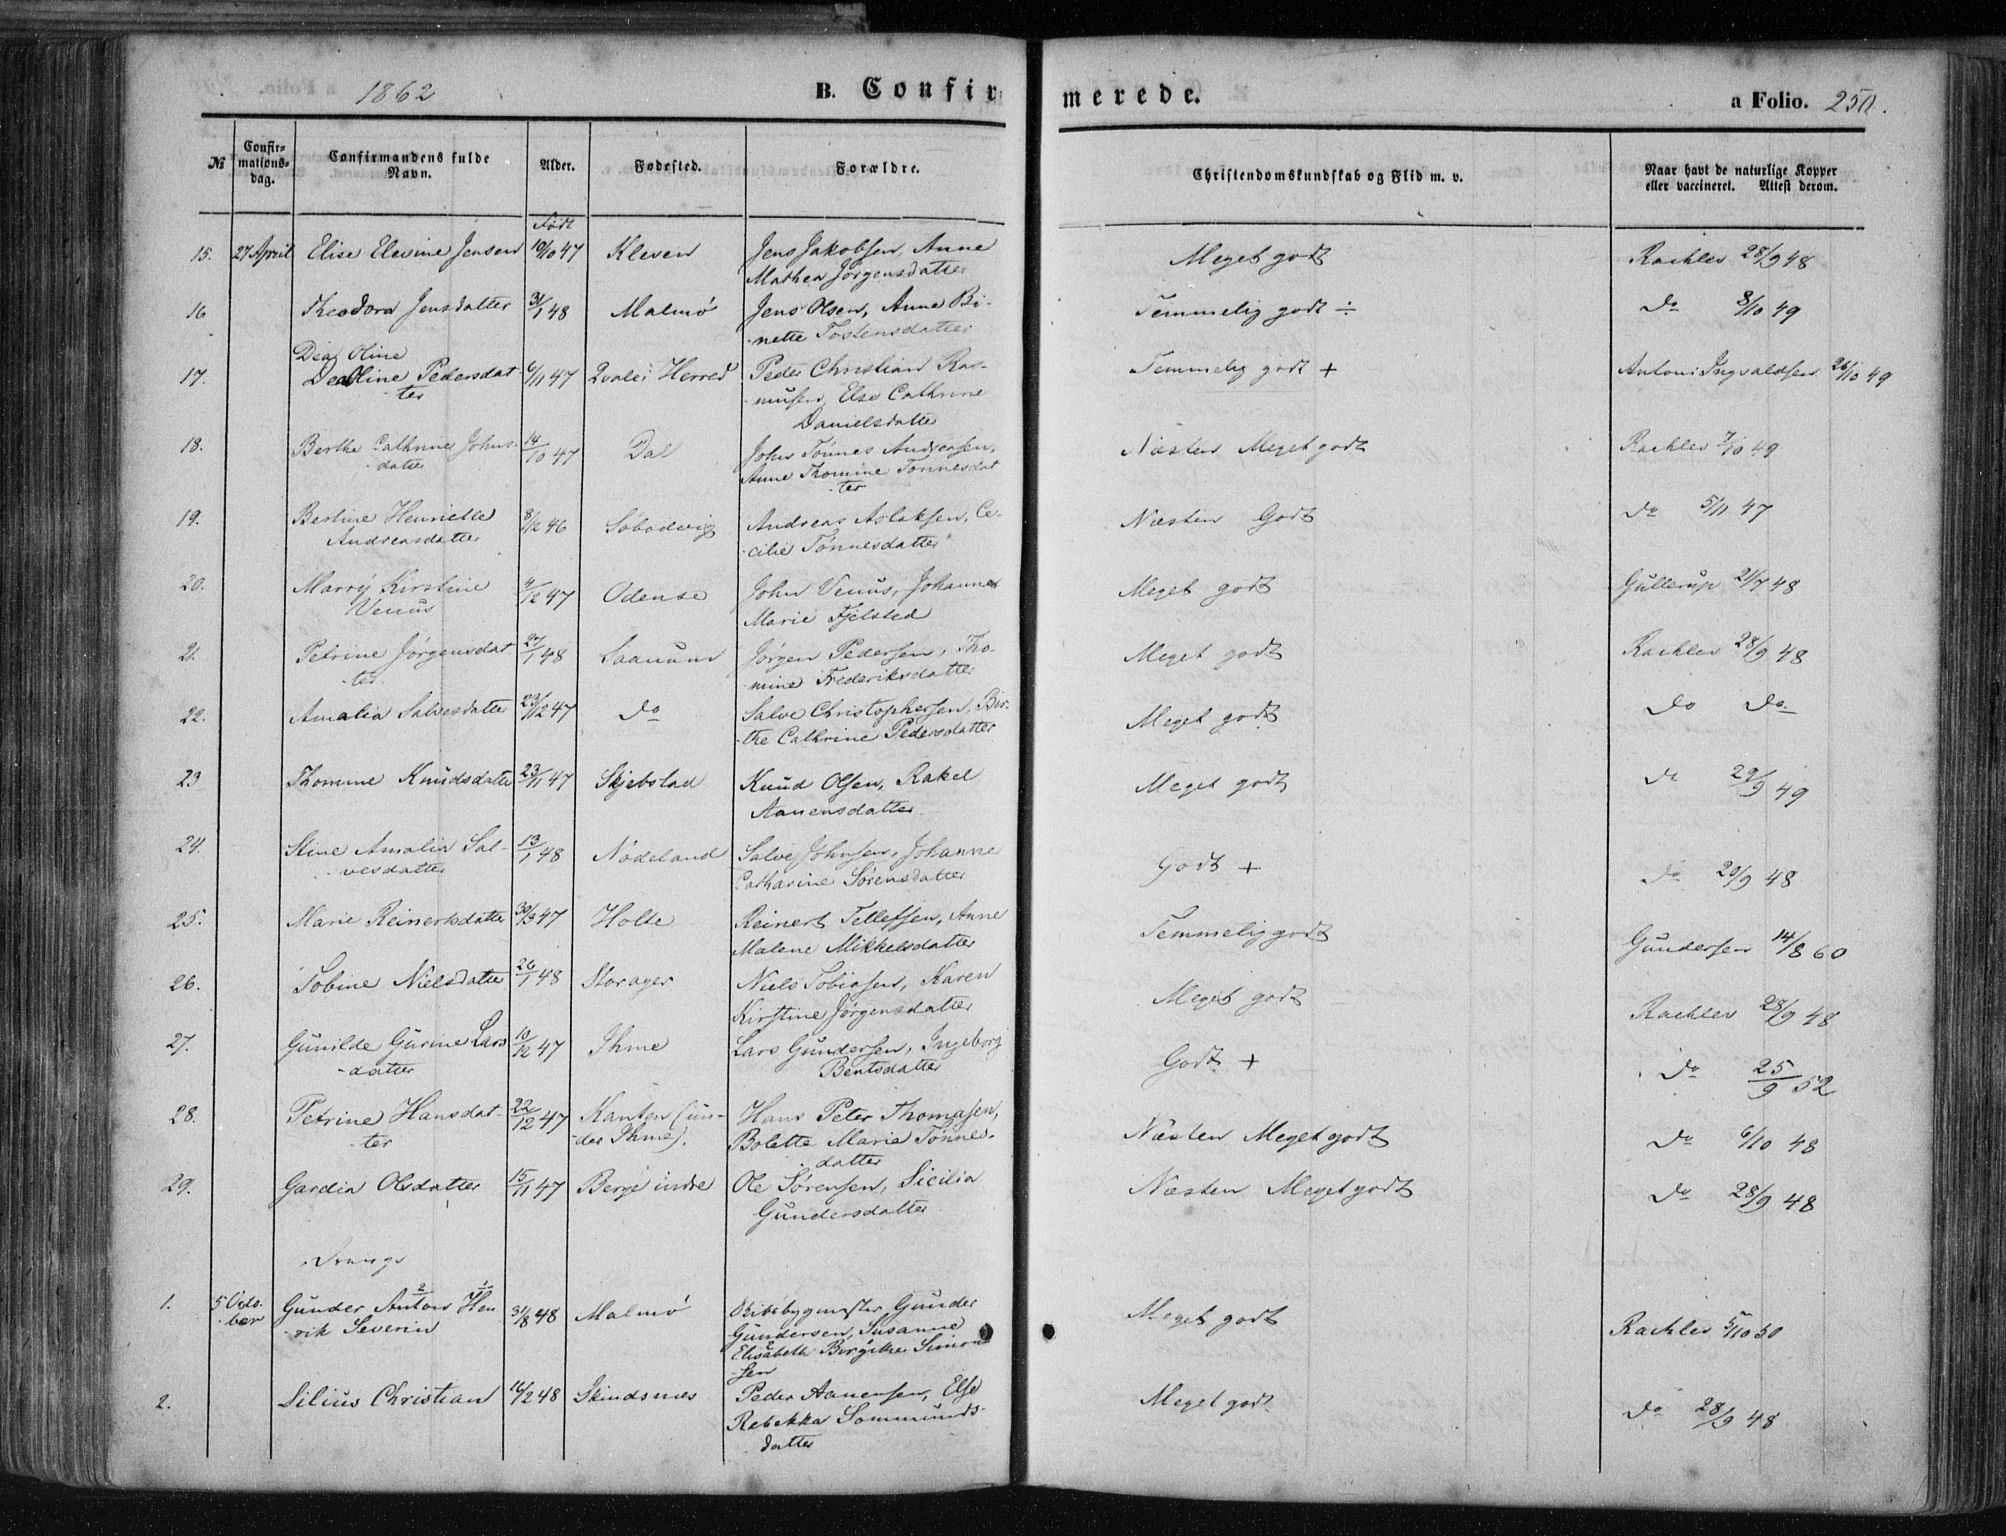 1862
B. Confirmerede.
a Folio. 250.
№
Confir-
mations-
dag.
Confirmandens fulde
Navn.
Alder.
Fødested.
Forældre.
Christendomskundskab og Flid m. v.
Naar havt de naturlige Kopper
eller vaccineret. Attest derom.
Født
15. 27 April Elise Elevine Jensen 19/10 47 Kleven Jens Jakobsen, Anne Meget godt Rachlev 28/9 48
Mathea Jørgensdatter
16 Theodora Jensdatter 31/1 48 Malmö Jens Olsen, Anne Bi- Temmelig godt ÷ Do 8/10 49
nette Tostensdatter
Dea Oline
17. Dea Oline Pedersdat- 6/11 47 Qvale i Herred Peder Christian Ras- Temmelig godt + Antoni Ingvaldsen 26/10 49
ter -musen, Else Cathrine
Danielsdatter
18. Berthe Cathrine Johns- 14/10 47 Dal John Tønnes Andreasen, Næsten Meget godt Rachlev 7/10 49
datter Anne Thomine Tønnesdat-
ter
19. Bertine Henriette 8/12 46 Andreas Aslaksen, Ce- Næsten Godt Do 5/11 47
Andreasdatter -cilie Tønnesdatter
20. Marry Kirstine 4/12 47 Odense John Venus, Johanne Meget godt Gullerup 21/7 48
Venus Marie Fjelsted
21. Petrine Jørgensdat- 27/1 48 Saanum Jørgen Pedersen, Tho- Meget godt Rachlev 28/9 48
ter mine Frederiksdatter
22. Amalia Salvesdatter 23/12 47 Do Salve Christophersen, Bir- Meget godt. Do Do
-the Cathrine Pedersdatter
23 Thomine Knudsdatter 23/11 47 Skjebstad Knud Olsen, Rakel Meget godt Do 29/9 49
Aanensdatter
24. Stine Amalia Sal- 13/1 48 Nödeland Salve Johnsen, Johanne Godt + Do 20/9 48
vesdatter Catharine Sørensdatter
25. Marie Reinertsdatter 30/3 47 Holte Reinert Tellefsen, Anne Temmelig godt Gundersen 14/8 60
Malene Mikkelsdatter
26. Tobine Nielsdatter 26/1 48 Storager Niels Tobiasen, Karen Meget godt Rachlev 28/9 48
Kirstine Jørgensdatter
27. Gunilde Gurine Lars 10/12 47 Ihme Lars Gundersen, Ingeborg Godt + Do 25/9 52
-datter Bentsdatter
28. Petrine Hansdat- 22/12 47 Kanten (un- Hans Peter Thomasen, Næsten Meget godt Do 6/10 48
ter -der Ihme). Bolette Marie Tønnes-
datter
29. Gardia Olsdatter 15/11 47 Berge indre Ole Sørensen, Sicilia Næsten Meget godt Do 28/9 48
Gundersdatter
Drenge
1. 5 Octo- Gunder Anton Hen 31/8 48 Malmö Skibsbygmester Gunder Meget godt Rachlev 5/10 50
-ber rik Severin Gundersen, Susanne
Elisabeth Birgithe Simon-
sen
2. Silius Christian 16/2 48 Skindsnes Peder Aanensen, Else Meget godt Do 28/9 48
Rebekka Sommunds-
datter